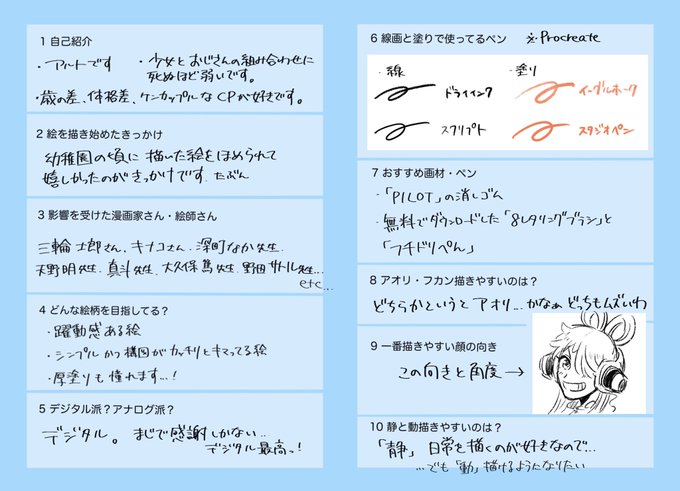 1 自己紹介
・アルトです
・少女とおじさんの組み合わせに
死ぬほど弱いです。
・歳の差、体格差、ケンカップルなCPが好きです。
2 絵を描き始めたきっかけ
幼稚園の頃に描いた絵をほめられて
嬉しかったのがきっかけです たぶん
3 影響を受けた漫画家さん・絵師さん
三輪士郎さん、キナコさん、深町なか先生、
天野明先生、真斗先生、大久保篤先生、野田サトル先生...
etc...
4 どんな絵柄を目指してる?
・躍動感ある絵
・シンプルかつ構図がカッチリとキマってる絵
・厚塗りも憧れます...!
5 デジタル派?アナログ派?
デジタル。まじで感謝しかない...
デジタル最高っ!
6 線画と塗りで使ってるペン
※Procreate
・線
ドライインク
スクリプト
・塗り
イーグルホーク
スタジオペン
7 おすすめ画材・ペン
・「PILOT」の消しゴム
・無料でダウンロードした「8レタリングブラシ」と
「フチドリぺん」
8 アオリ・フカン描きやすいのは?
どちらかというとアオリ...かなぁ どっちもムズいわ
9 一番描きやすい顔の向き
この向きと角度→
10 静と動描きやすいのは?
「静」 日常を描くのが好きなので...
...でも「動」描けるようになりたい